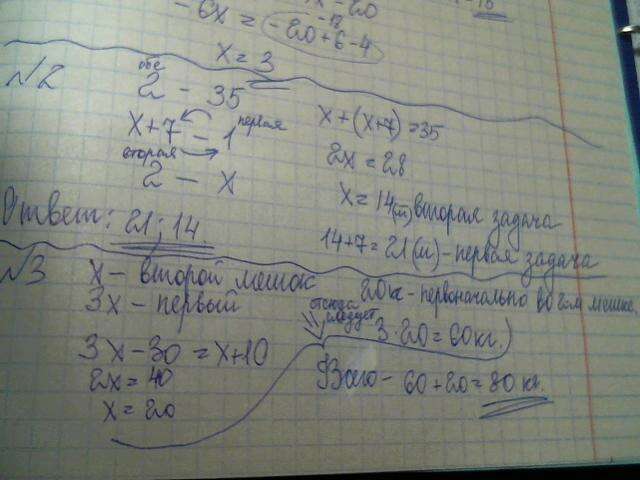 - 6x = -20+6-4
-18
x = 3
№2
обе
2 - 35
x+7 - 1 первая
вторая
2 - x
x+(x+7)=35
2x = 28
x = 14(м) вторая задача
14+7=21(м)-первая задача
Ответ: 21; 14
№3
x - второй мешок
3x - первый
3x-30 = x+10
2x = 40
x = 20
20 кг - первоначально во 2-м мешке
отсюда следует
3·20=60кг.)
Всего - 60+20=80 кг.